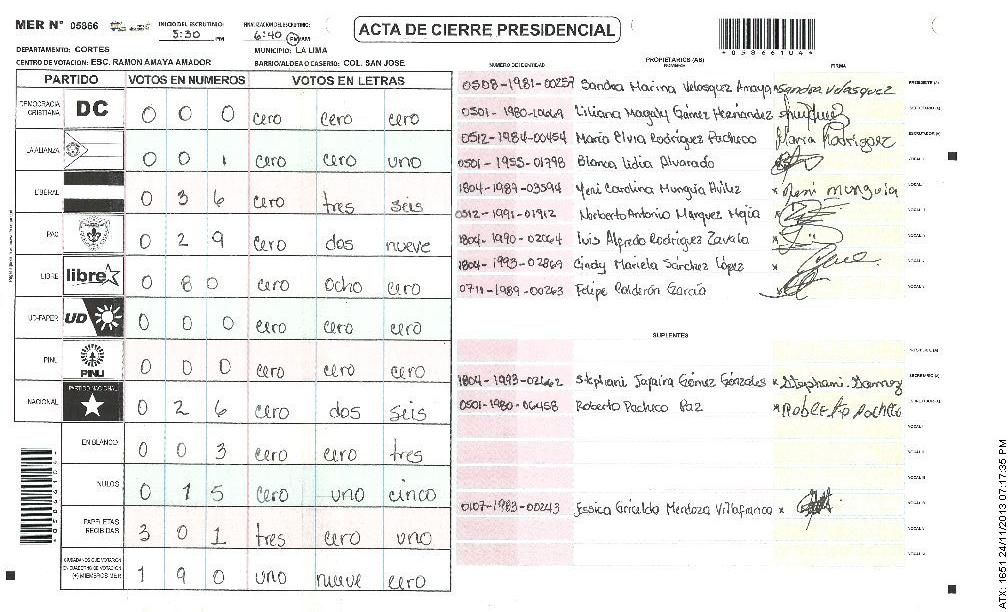 MER Nº 05866 INICIO DEL ESCRUTINIO: 5:30 PM FINALIZACION ESCRUTINIO: 6:40 PM AM
ACTA DE CIERRE PRESIDENCIAL
*058661044*
DEPARTAMENTO: CORTES MUNICIPIO: LA LIMA
CENTRO DE VOTACION: ESC. RAMON AMAYA AMADOR BARRIO/ALDEA O CASERIO: COL. SAN JOSE
PARTIDO VOTOS EN NUMEROS VOTOS EN LETRAS
DEMOCRACIA CRISTIANA DC 0 0 0 cero cero cero
LA ALIANZA 0 0 1 cero cero uno
LIBERAL 0 3 6 cero tres seis
PAC 0 2 9 cero dos nueve
LIBRE libre 0 8 0 cero ocho cero
UD-FAPER UD 0 0 0 cero cero cero
PINU PINU 0 0 0 cero cero cero
NACIONAL PARTIDO NACIONAL 0 2 6 cero dos seis
EN BLANCO 0 0 3 cero cero tres
NULOS 0 1 5 cero uno cinco
PAPELETAS RECIBIDAS 3 0 1 tres cero uno
CIUDADANOS QUE VOTARON EN CUADERNO DE VOTACION (+) MIEMBROS MER 1 9 0 uno nueve cero
NUMERO DE IDENTIDAD PROPIETARIOS (AS) NOMBRES FIRMA
0508-1981-00257 Sandra Marina Velasquez Amaya Sandra Velasquez PRESIDENTE (A)
0501-1980-10669 Liliana Magaly Gámez Hernández SECRETARIO (A)
0512-1984-00454 María Elvia Rodríguez Pacheco Maria Rodriguez ESCRUTADOR (A)
0501-1955-01798 Blanca Lidia Alvarado VOCAL I
1804-1989-03594 Yeni Carolina Munguia Avilez x Yeni munguia VOCAL
0512-1991-01912 Norberto Antonio Marquez Mejía x VOCAL
1804-1990-02064 Luis Alfredo Rodríguez Zavala x VOCAL
1804-1993-02869 Cindy Mariela Sánchez López x VOCAL
0711-1989-00263 Felipe Calderón García VOCAL
SUPLENTES
1804-1993-02662 Stephani Jafaira Gómez Gonzales x Stephani Gomez SECRETARIO (A)
0501-1980-06458 Roberto Pacheco Paz x Roberto Pacheco
VOCAL
VOCAL
VOCAL
0107-1983-00243 Jessica Griselda Mendoza Villafranca x VOCAL
VOCAL
VOCAL
ATX: 1651 24/11/2013 07:17:35 PM